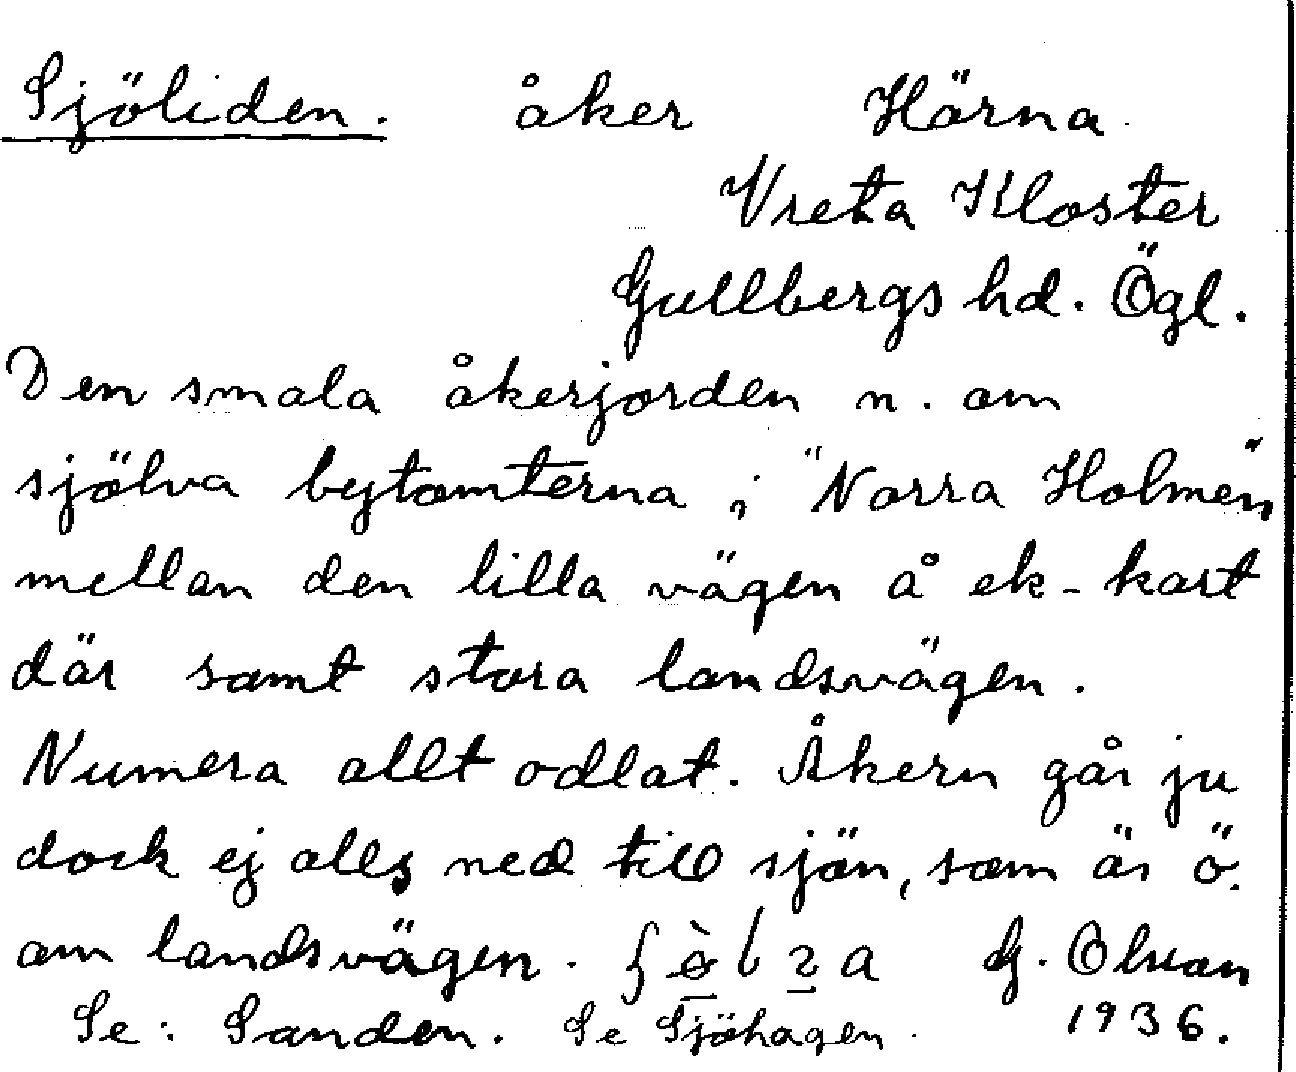 Sjöliden. åker Härna.
Vreta Kloster
Gullbergs hd. Ögl.
Den smala åkerjorden n. om
själva bytomterna i "Norra Holmen"
mellan den lilla vägen å ek-kart
där samt stora landsvägen.
Numera allt odlat. Åkern går ju
dock ej alls ned till sjön, som är ö.
om landsvägen. G. Olson
Se: Sanden. Se Sjöhagen. 1936.